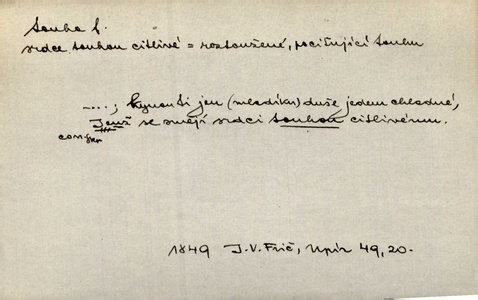 touha f.
srdce touhou citlivé = roztoužené, pociťující touhu
....., kynou ti jen (mladíku) duše jedem chladné,
Jenž se smějí srdci touhou citlivému.
1849 J. V. Frič, Upír 49, 20.